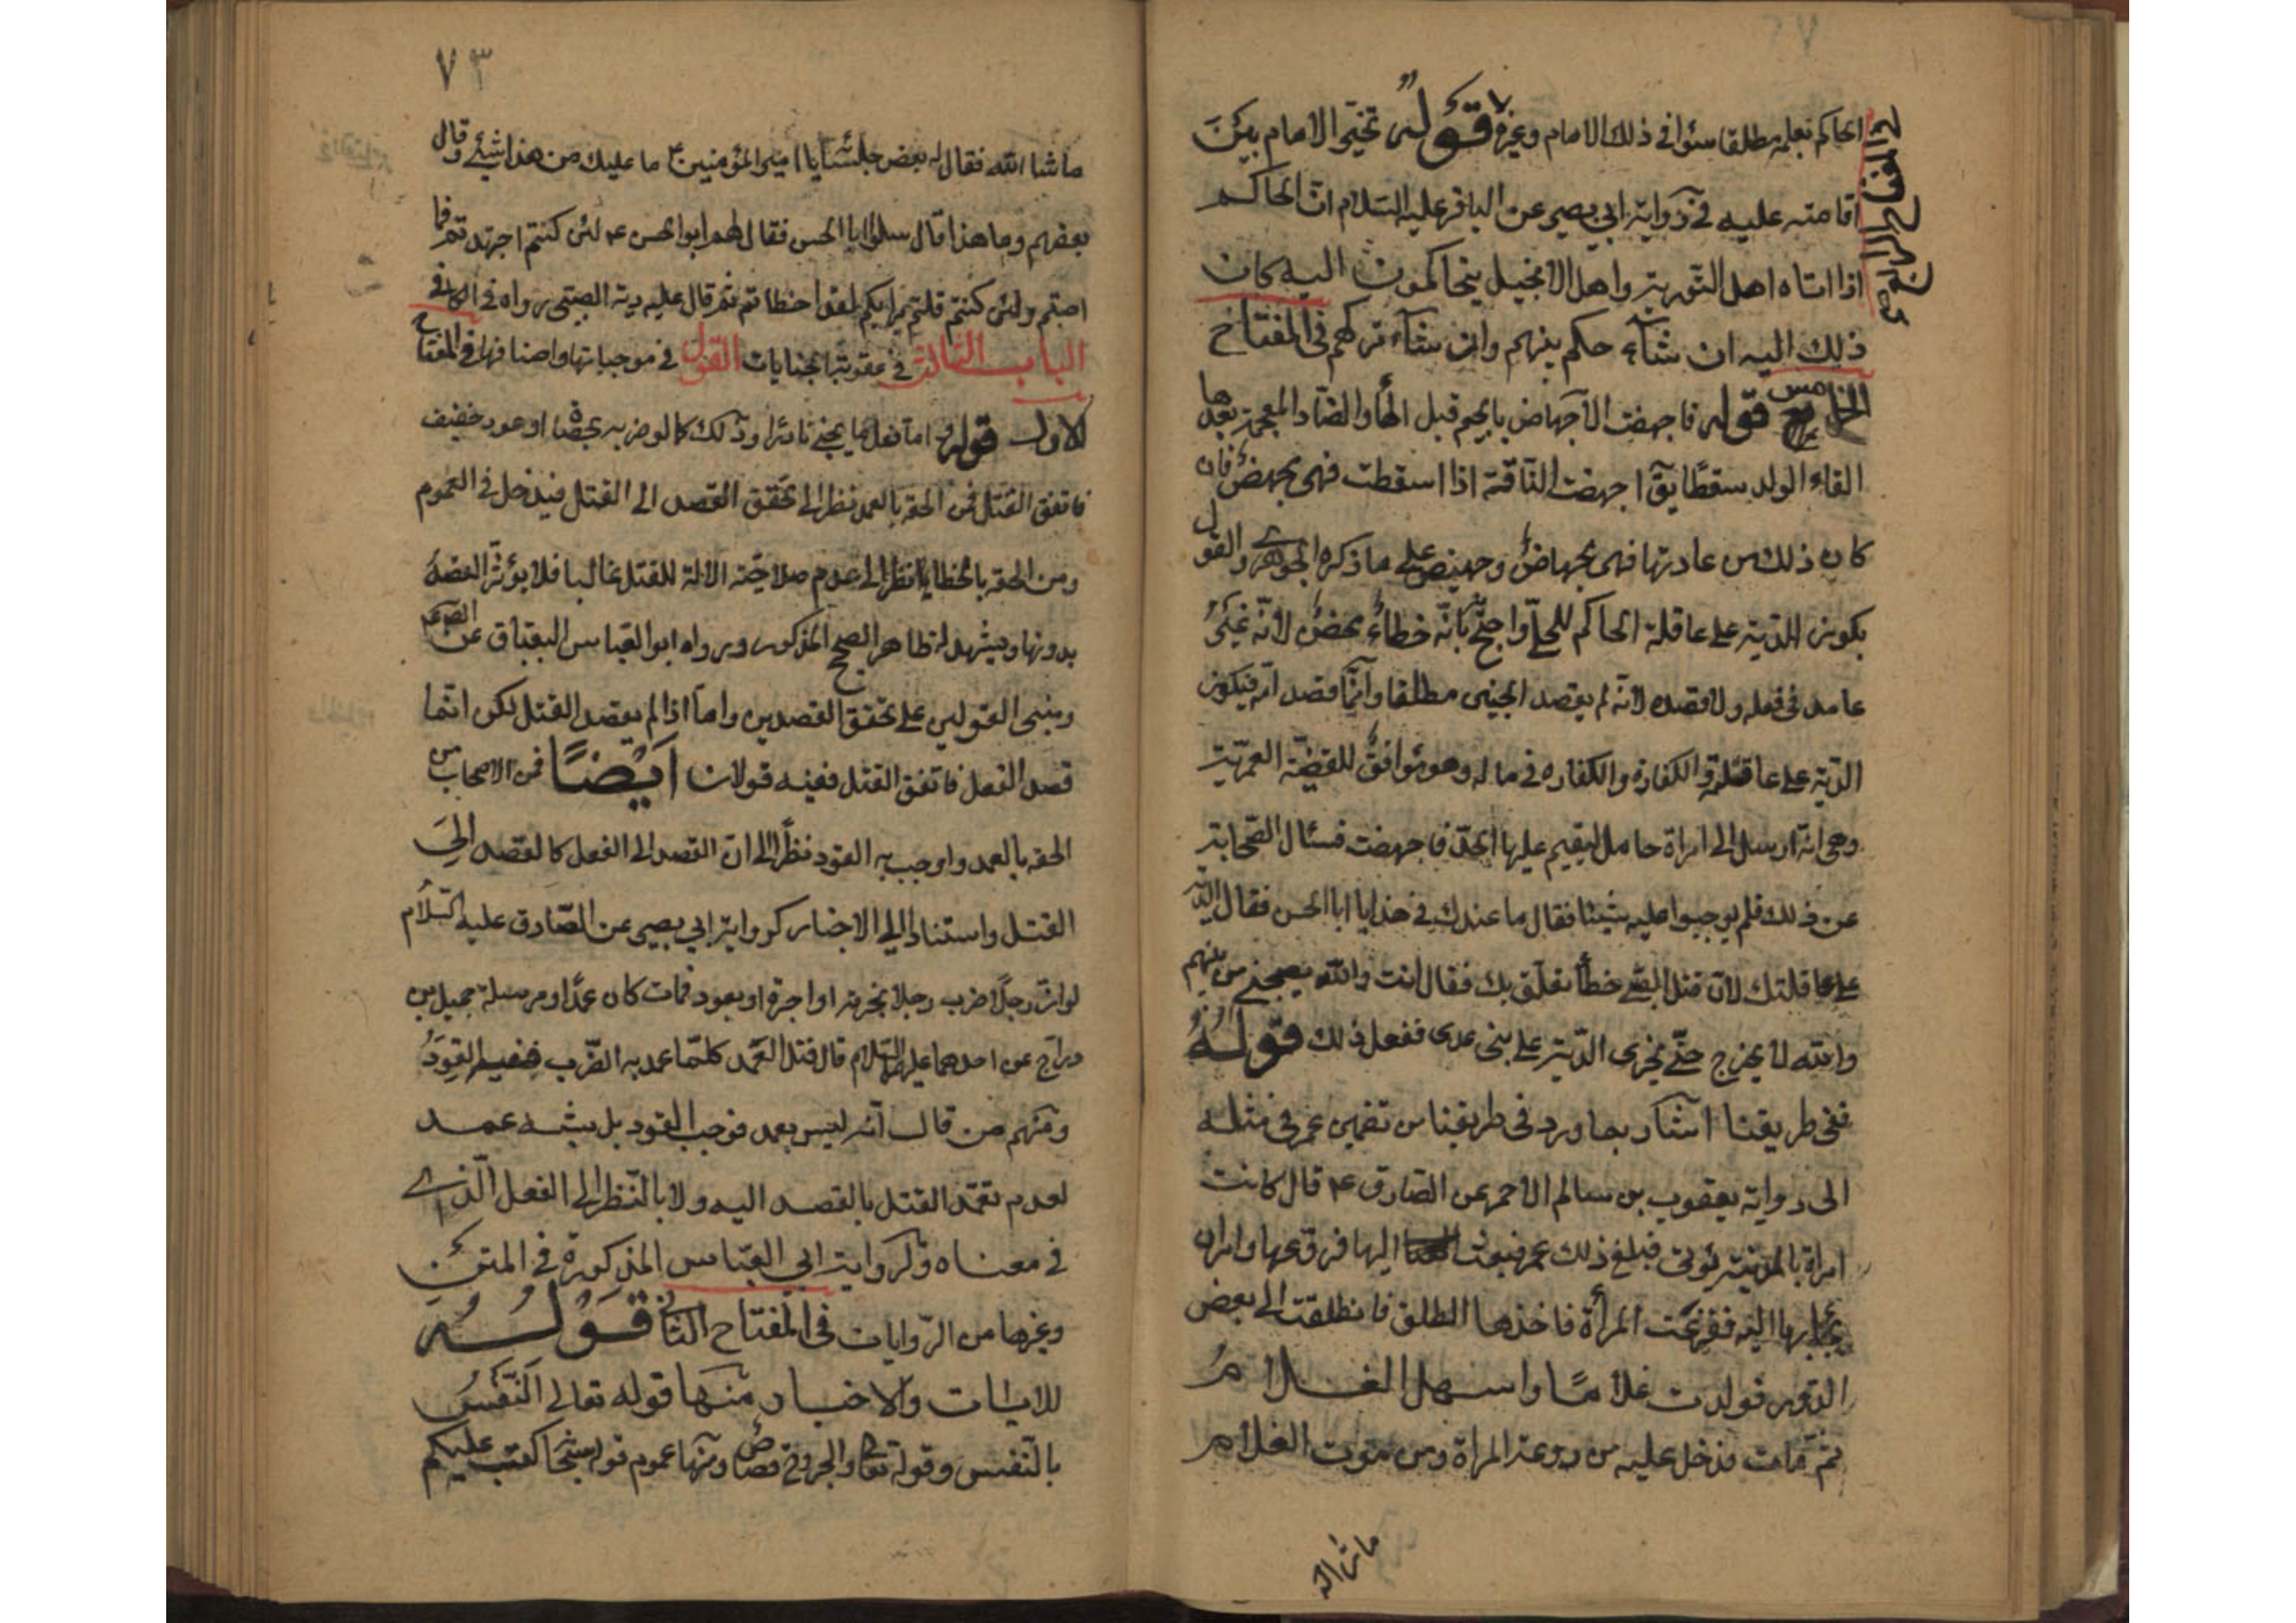 الحاكم بعلمه مطلقا سئوا في ذلك الامام وغيره قوله تخير الامام بين
اقامته عليه في رواية ابي بصير عن الباقر عليه السلام ان الحاكم
اذا اتاه اهل التورية واهل الانجيل يتحاكمون اليه كان
ذلك اليه ان شاء حكم بينهم وان شاء تركهم في المفتاح
الخامس قوله فاجهضت الاجهاض بالجيم قبل الهاء والضاد المعجمة بعدها
القاء الولد سقطا يق اجهضت الناقة اذا اسقطت فهى مجهض فان
كان ذلك من عادتها فهى مجهاض وجهيض على ما ذكره الجوهرى والقول
بكون الدية على عاقلة الحاكم للحلي واحتج بانه خطاء محض لانه غير
عامد في فعله ولا قصده لانه لم يقصد الجنين مطلقا وانما قصد امه فيكون
الدية على عاقلته والكفارة في ماله وهو موافق للقضية العمرية
وهى انه ارسل الى امراة حامل ليقيم عليها الحد فاجهضت فسئال الصحابة
عن ذلك فلم يوجبوا عليه شيئا فقال ما عندك في هذا يا ابا الحسن فقال الدية
على عاقلتك لان قتل الصبي خطأ تعلق بك فقال انت والله نصحتني من بينهم
والله لا يخرج حتى يجرى الدية على بنى عدى ففعل ذلك قوله
ففى طريقنا اشار بما ورد في طريقنا من تضمين عمر في مثله
الى رواية يعقوب بن سالم الاحمر عن الصادق ع قال كانت
امراة بالمدينة تؤتى فبلغ ذلك عمر فبعث اليها فروعها وامر ان
يجاء بها اليه ففزعت المرأة فاخذها الطلق فانطلقت الى بعض
الدور فولدت غلاما واستهل الغلام
ثم مات فدخل عليه من روعة المراة ومن موت الغلام
ما شاء الله
٧٣
ما شا الله فقال له بعض جلسائه يا امير المؤمنين ع ما عليك من هذا شيئ وقال
بعضهم وما هذا قال سلوا ابا الحسن فقال لهم ابو الحسن ع لئن كنتم اجتهدتم فما
اصبتم ولئن كنتم قلتم برايكم لقد اخطاتم ثم قال عليه دية الصبى رواه في الكافي
الباب الثالث في عقوبة الجنايات القول في موجباتها واصنافها في المفتاح
الاول قوله اما فعل ما يجئ نادرا وذلك كالو ضربه بحصاة او عود خفيف
فاتفق القتل فمن الحقه بالعمد نظر الى تحقق القصد الى القتل فيدخل في العموم
ومن الحقه بالخطا نظر الى عدم صلاحية الالة للقتل غالبا فلا يؤثر القصد
بدونها ويشهد له ظاهر الصحيح المذكور ورواه ابو العباس البقباق عن
ومبنى القولين على تحقق القصدين واما اذا لم يقصد القتل لكن انما
قصد الفعل فاتفق القتل ففيه قولان ايضا فمن الاصحاب من
الحقه بالعمد واوجب به القود نظرا الى ان القصد الى الفعل كالقصد الى
القتل واستنادا الى الاخبار كرواية ابي بصير عن الصادق عليه السلام
لو ان رجلا ضرب رجلا بخزفة او اجرة او بعود فمات كان عمدا ومرسلة جميل بن
دراج عن احدهما عليهما السلام قال قتل العمد كلما عمد به الضرب ففيه القود
ومنهم من قال انه ليس بعمد فوجب القود بل شبه عمد
لعدم تعمد القتل بالقصد اليه ولا بالنظر الى الفعل الذى
في معناه وكرواية ابي العباس المذكورة في المتن
وغيرها من الروايات في المفتاح الثانى قوله
للايات والاخبار منها قوله تعالى النفس
بالنفس وقوله تعالى والجروح قصاص ومنها عموم قوله سبحانه كتب عليكم